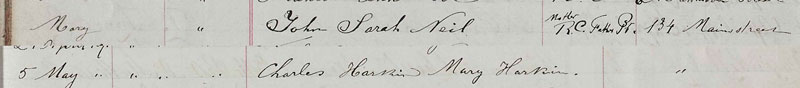 Mary " John Sarah Neil Mother R.C. Father Pr. 134 Mainstreet
5 May " " " " Charles Harkin Mary Harkin. "